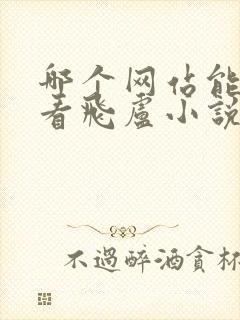 哪个网佔能
看飛盧小說
不過醉酒貪杯